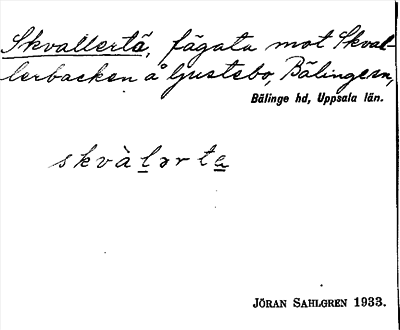 Skvallertå, fägata mot Skval-
lerbacken å Ljustebo, Bälinge sn,
Bälinge hd, Uppsala län.
skvàlərta
JÖRAN SAHLGREN 1933.